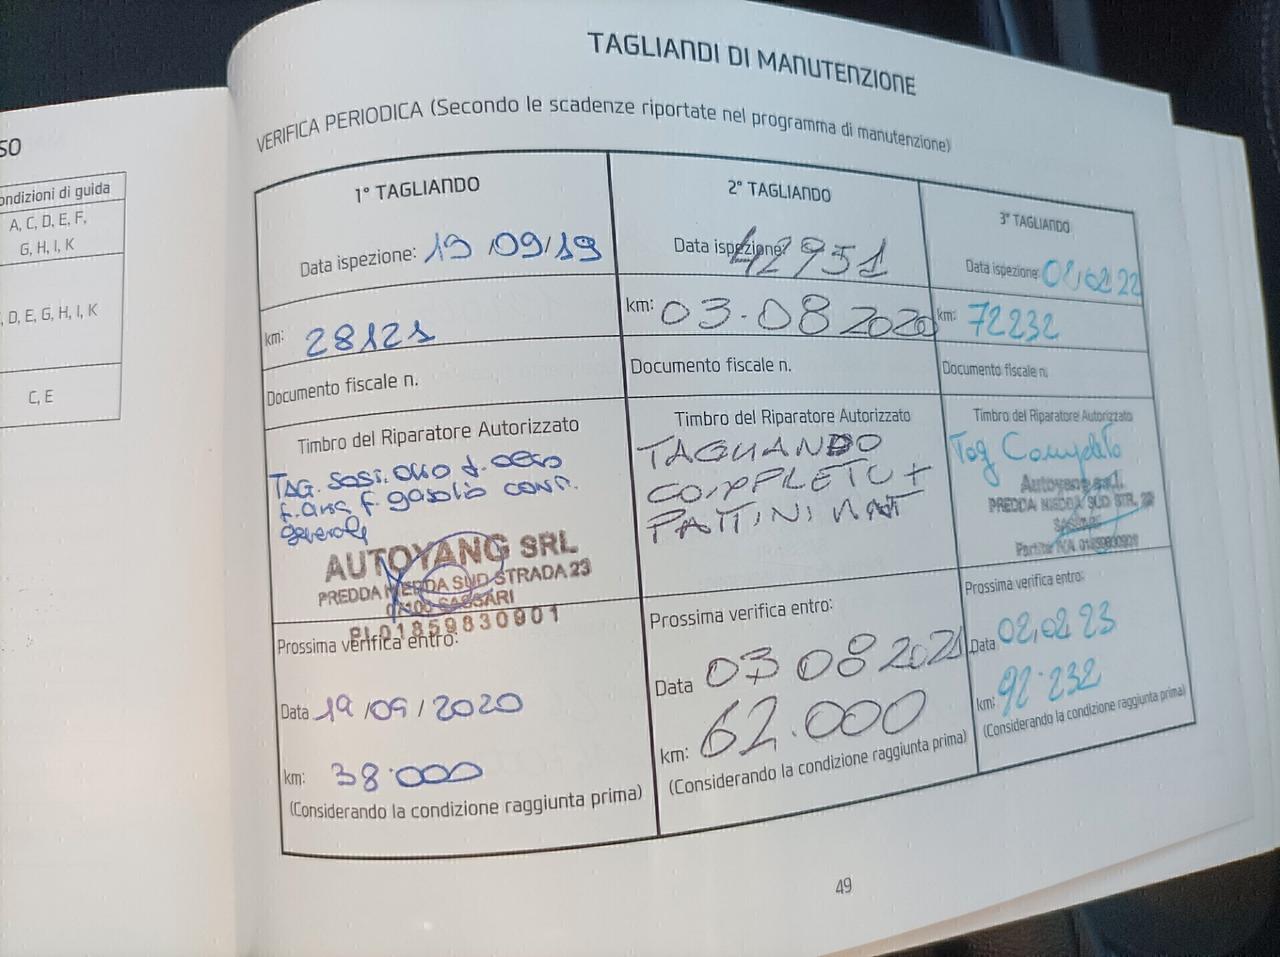 SO
ondizioni di guida
A, C, D, E, F,
G, H, I, K
, D, E, G, H, I, K
C, E
TAGLIANDI DI MANUTENZIONE
VERIFICA PERIODICA (Secondo le scadenze riportate nel programma di manutenzione)
1° TAGLIANDO
Data ispezione: 19/09/19
km: 28121
Documento fiscale n.
Timbro del Riparatore Autorizzato
TAG. SOST. OLIO f. OLIO
f. ARIA f. gasolio CONT.
generale
AUTOYANG SRL
PREDDA NIEDDA SUD STRADA 23
07100 SASSARI
PI 01859830901
Prossima verifica entro:
Data 19/09/2020
km: 38.000
(Considerando la condizione raggiunta prima)
2° TAGLIANDO
Data ispezione: 42951
km: 03-08 2020
Documento fiscale n.
Timbro del Riparatore Autorizzato
TAGLIANDO
COMPLETO +
PATTINI
Prossima verifica entro:
Data 03 08 2021
km: 62.000
(Considerando la condizione raggiunta prima)
3° TAGLIANDO
Data ispezione: 02,02 22
km: 72232
Documento fiscale n.
Timbro del Riparatore Autorizzato
Tag Completo
Autoyang s.r.l.
PREDDA NIEDDA SUD STR. 23
SASSARI
Partita IVA 01859830901
Prossima verifica entro:
Data 02,02 23
km: 92.232
(Considerando la condizione raggiunta prima)
49